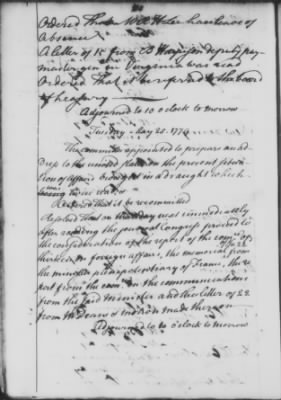 Ordered That Mr Hale have leave of
Absence
A letter of 15 from B Harrison deputy pay
master gen in Virginia was read
Ordered That it be referred to the board
of treasury
Adjourned to 10 o Clock to morrow
Tuesday May 25. 1779
The committee appointed to prepare an ad
dress to the united states on the present situa
tion of affairs brought in a draught which
was read
Ordered That it be recommitted
Resolved That on next immediately
after reading the journal Congress proceed to
the consideration of the report of the comee
affairs
on foreign affairs, the memorial from
the minister plenipotentiary of France, the re
port from the com. on the communications
from the said minister and the letter of 22
from thereon
Adjourned to 10 o clock to morrow